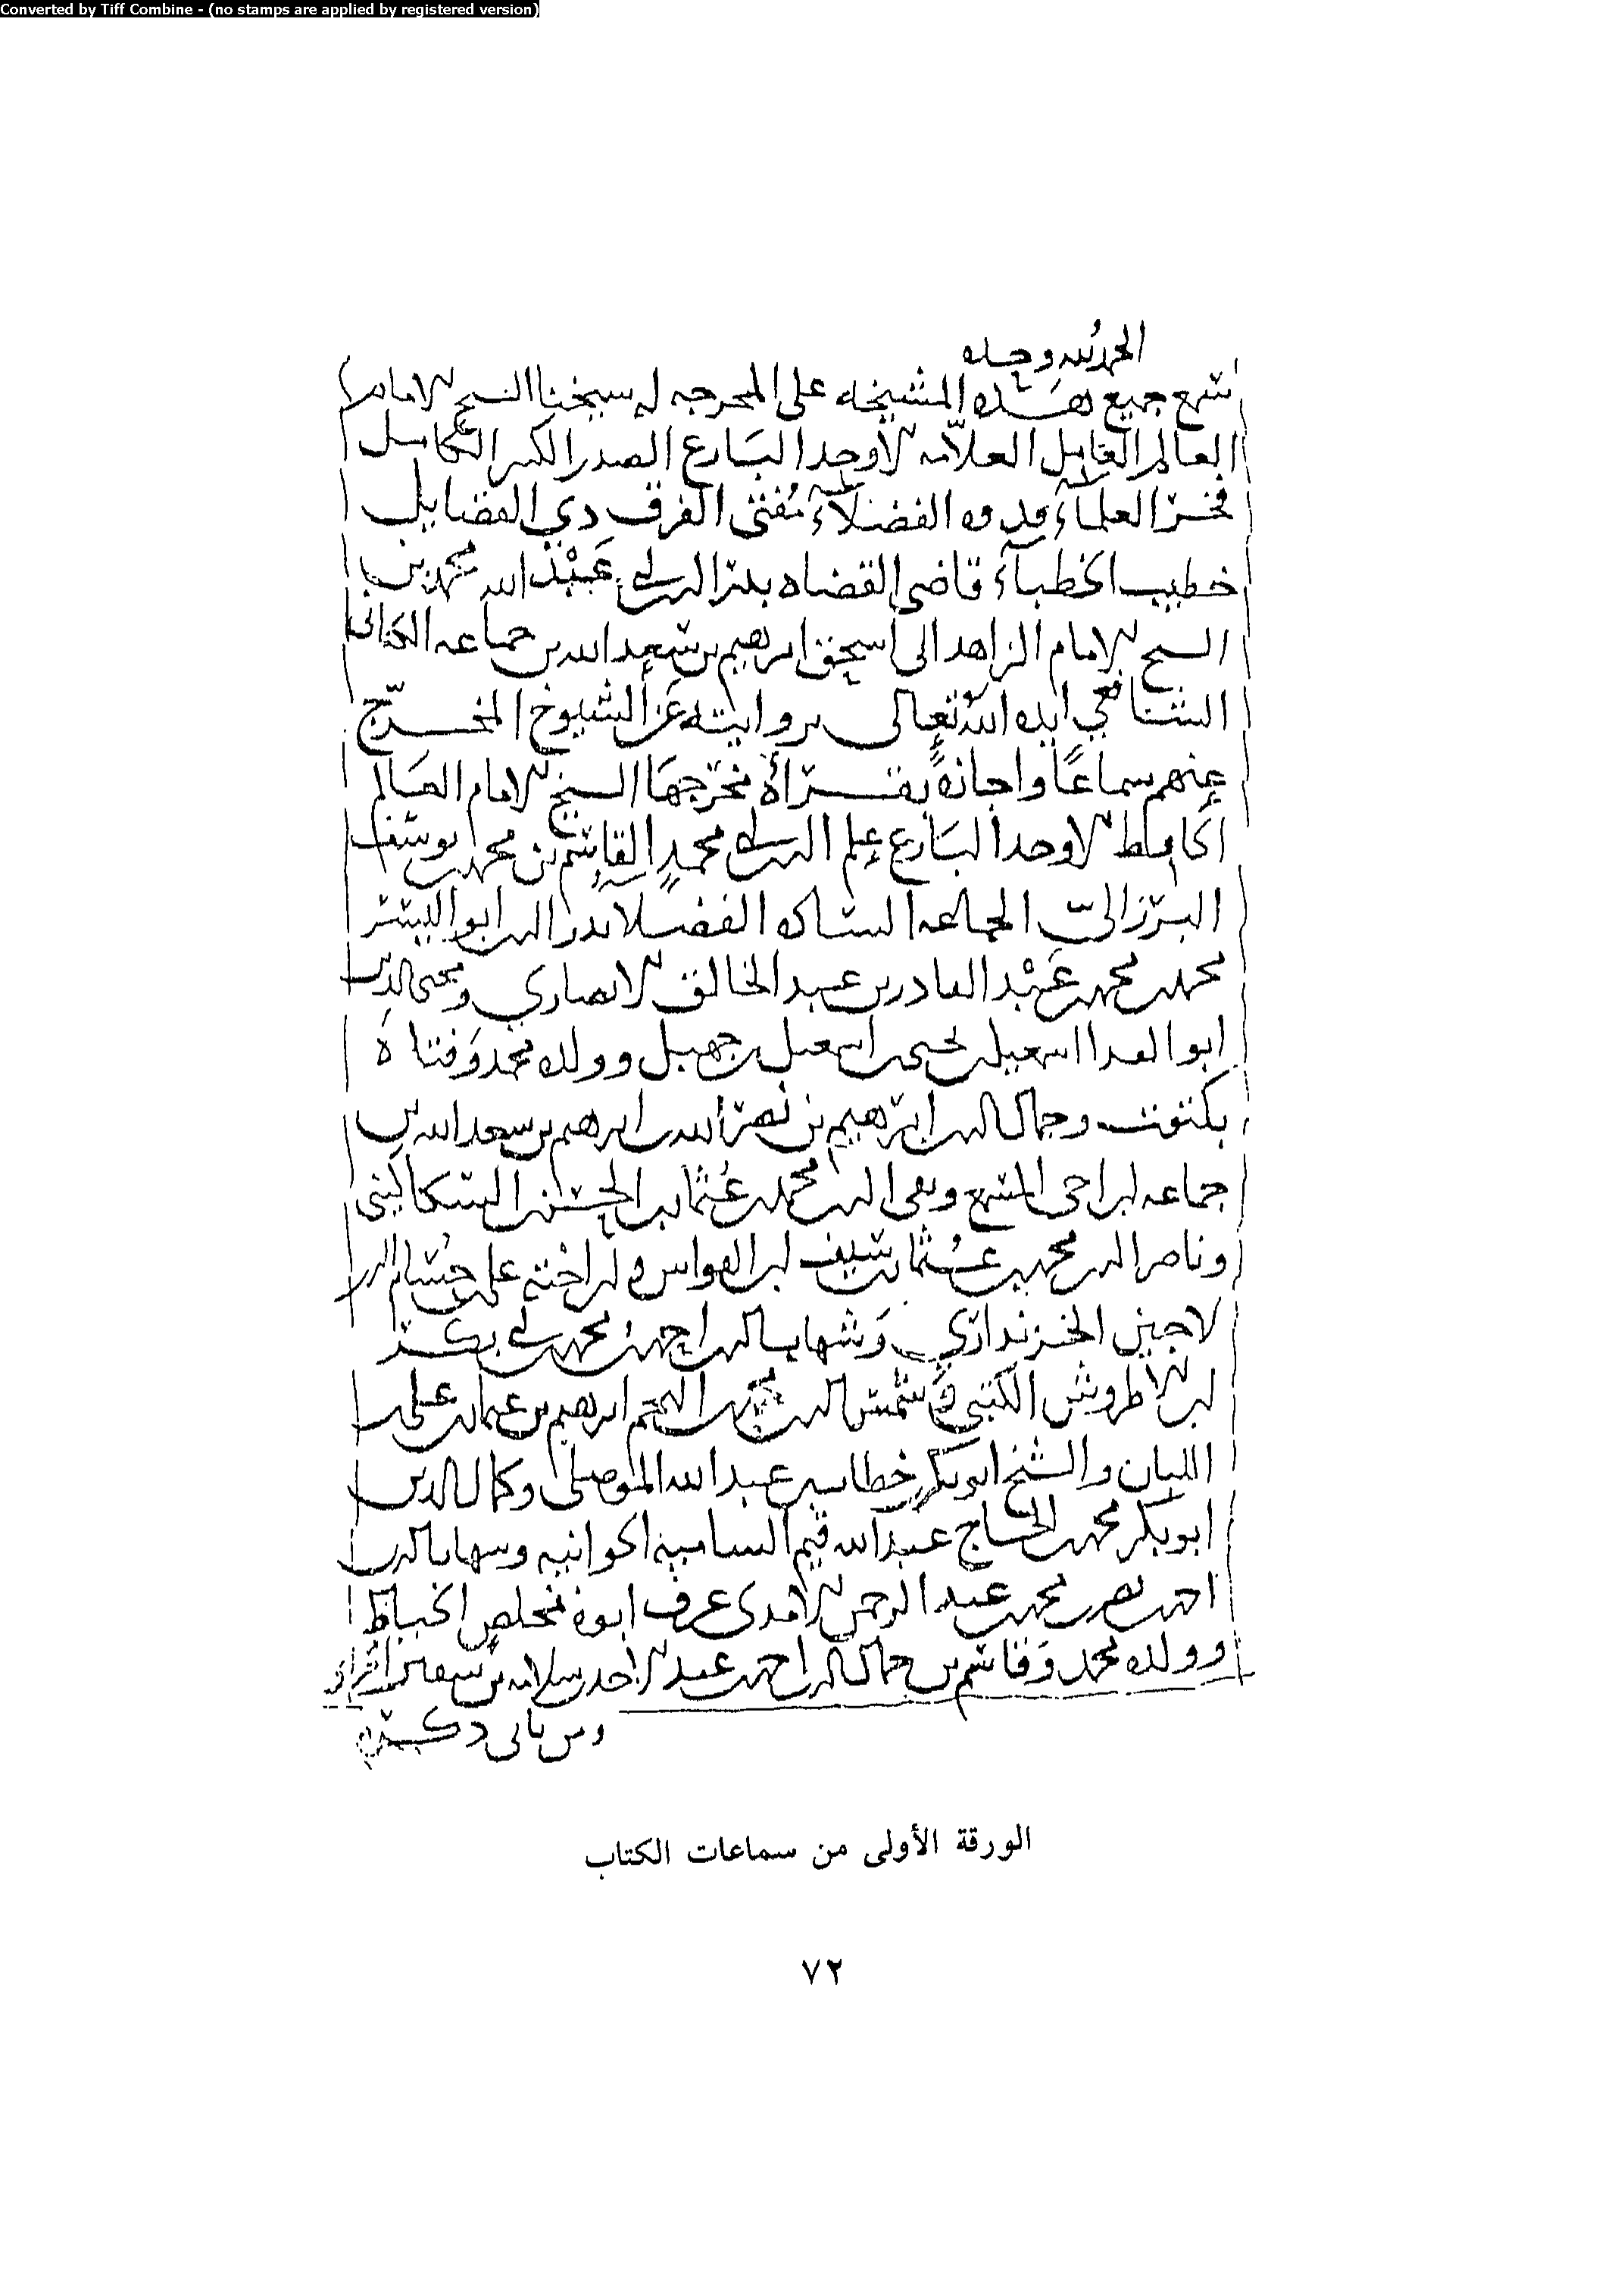 Converted by Tiff Combine - (no stamps are applied by registered version)
الحمد لله وحده
سمع جميع هذه المشيخه على المخرجه له سيخنا الشيخ الامام
العالم العامل العلامه الاوحد البارع الصدر الكبير الكامل
فخر العلماء قدوه الفضلاء مفتى الفرق ذي الفضايل
خطيب الخطباء قاضى القضاه بدر الدين ابي عبد الله محمد بن
الشيخ الامام الزاهد ابى اسحق ابرهيم بن سعد الله بن جماعه الكنانى
الشافعي ايده الله تعالى بروايته عن الشيوخ المخرج
عنهم سماعا واجازة بقراة مخرجها الشيخ الامام العالم
الحافظ الاوحد البارع علم الدين ابي محمد القاسم بن محمد بن يوسف
البرزالي الجماعه الساده الفضلا بدر الدين ابو اليسر
محمد بن محمد بن عبد القادر بن عبد الخالق الانصاري ومحيى الدين
ابو الفدا اسمعيل بن يحيى بن اسمعيل بن جهبل وولده محمد وفتاه
بكتوت وجمال الدين ابرهيم بن نصر الله بن ابرهيم بن سعد الله بن
جماعه ابن اخى المسمع وتقى الدين محمد بن عثمان بن الحسن السكاكينى
وناصر الدين محمد بن عثمان بن سيف ابن القواس وابن اخته على بن حسام الدين
لاجين الخزنداري وشهاب الدين احمد بن محمد بن ابي بكر
ابن الاطروش الكتبي وشمس الدين محمد بن النجم ابرهيم بن عثمان بن على بن
اللبان والشيخ ابو بكر بن خطاب بن عبد الله الموصلى وكمال الدين
ابو بكر محمد بن الحاج عبد الله قيم الشامية الجوانيه وشهاب الدين
احمد بن نصر بن محمد بن عبد الرحمن الامدى عرف ابوه بمخلص الخياط
وولده محمد وقاسم بن جمال الدين احمد بن عبد الاحد بن سلامه بن
ومن ياتى ذكره
الورقة الأولى من سماعات الكتاب
٧٢